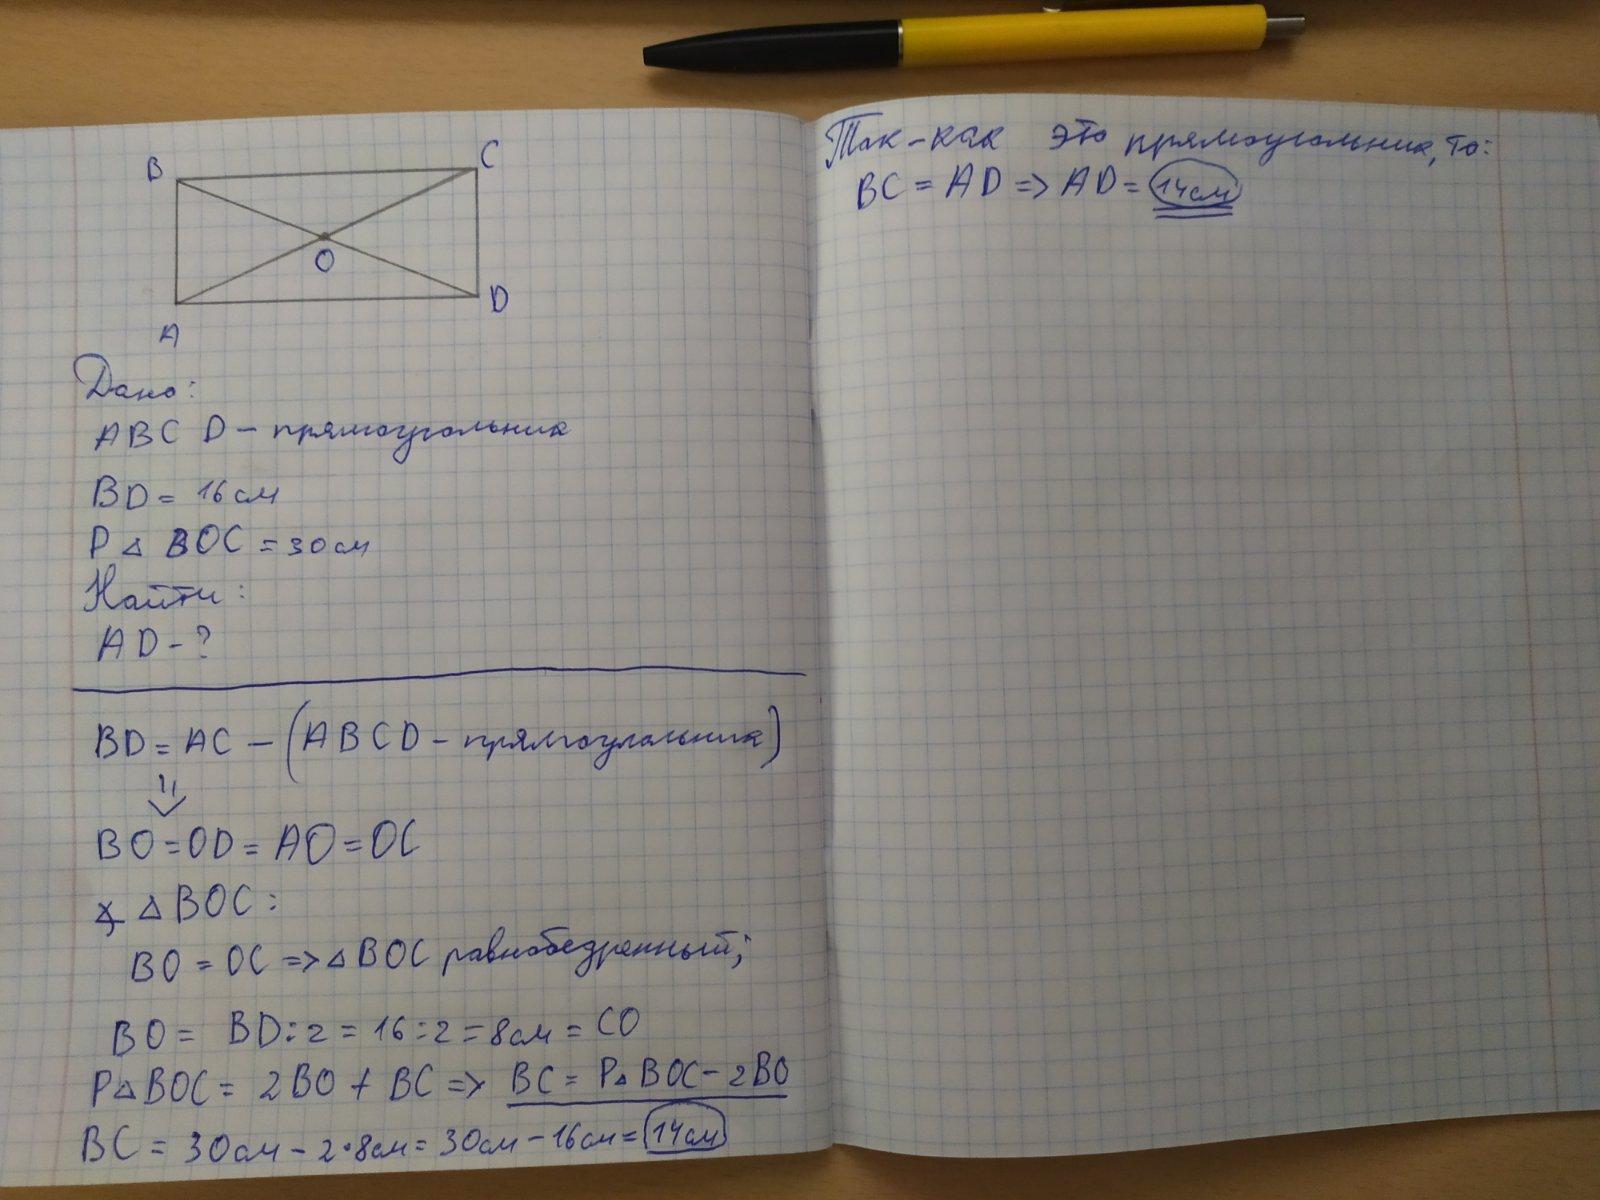 B
C
O
A
D
Дано:
ABCD - прямоугольник
BD = 16 см
P △ BOC = 30 см
Найти:
AD - ?
BD = AC - (ABCD - прямоугольник)
⇓
BO = OD = AO = OC
△ BOC:
BO = OC => △ BOC равнобедренный;
BO = BD : 2 = 16 : 2 = 8 см = CO
P△BOC = 2BO + BC => BC = P△BOC - 2BO
BC = 30 см - 2 • 8 см = 30 см - 16 см = 14 см
Так-как это прямоугольник, то:
BC = AD => AD = 14 см